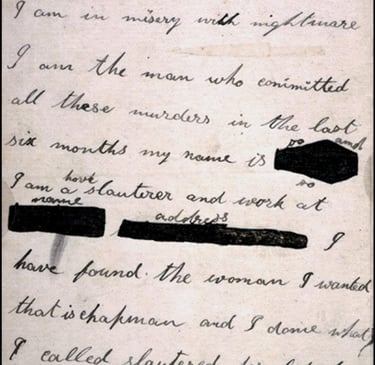 I am in misery with nightmare
I am the man who committed
all these murders in the last
six months my name is so and
so
I am a horse slauterer and work at
name address
I
have found the woman I wanted
that is chapman and I done what
I called slautered